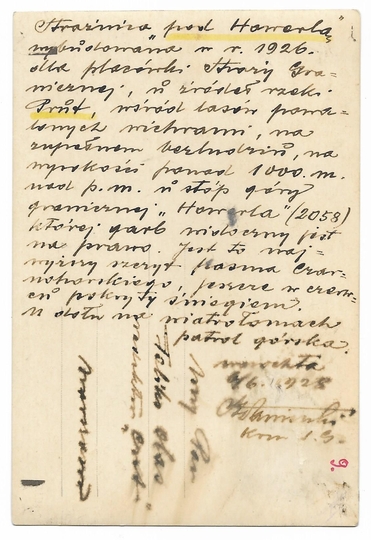 Strażnica „pod Howerlą"
wybudowana w r. 1926.
dla placówki Straży Gra=
nicznej, u źródeł rzeki
Prut, wśród lasów powa=
lonych wichrami, na
zupełnem bezludziu, na
wysokości ponad 1000. m.
nad p. m. u stóp góry
granicznej „Howerla" (2058)
której garb widoczny jest
na prawo. Jest to naj=
wyższy szczyt pasma Czar=
nohorskiego, jeszcze w czerw=
cu pokryty śniegiem.
U dołu na wiatrołomach
patrol górska.
Worochta
6. 1928
kom. S.G.
Wny Pan
Feliks
Warszawa
9.